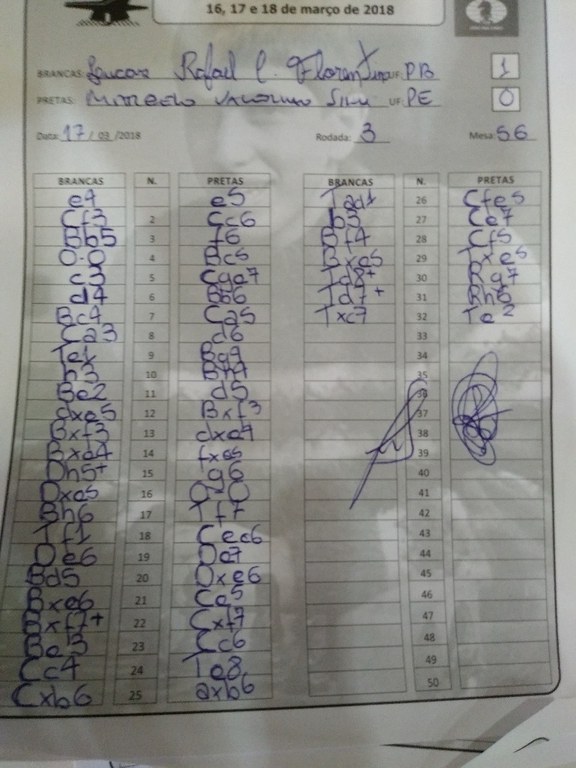 16, 17 e 18 de março de 2018
BRANCAS: Lucas Rafael C. Florentino UF: PB 1
PRETAS: UF: PE 0
Data: 17 / 03 /2018 Rodada: 3 Mesa: 56
BRANCAS N. PRETAS
e4 e5
Cf3 2 Cc6
Bb5 3 f6
0-0 4 Bc5
c3 5 Cge7
d4 6 Bb6
Bc4 7 Ca5
Ca3 8 d6
Te1 9 Bg4
h3 10 Bh5
Be2 11 d5
dxe5 12 Bxf3
Bxf3 13 dxe4
Bxe4 14 fxe5
Dh5+ 15 g6
Dxe5 16 0-0
Bh6 17 Tf7
Tf1 18 Cec6
De6 19 De7
Bd5 20 Dxe6
Bxe6 21 Ce5
Bxf7+ 22 Cxf7
Be3 23 Cc6
Cc4 24 Te8
Cxb6 25 axb6
BRANCAS N. PRETAS
Tad1 26 Cfe5
b3 27 Ce7
Bf4 28 Cf5
Bxe5 29 Txe5
Td8+ 30 Rg7
Td7+ 31 Rh6
Txc7 32 Te2
33
34
35
36
37
38
39
40
41
42
43
44
45
46
47
48
49
50